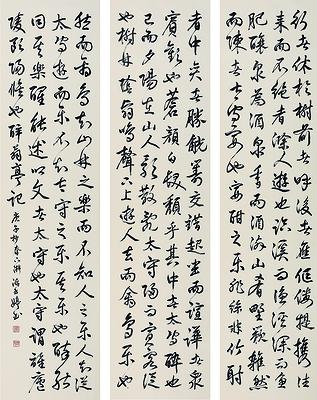 行者休於樹前者呼後者應傴僂提攜往
來而不絕者滁人遊也臨溪而漁溪深而魚
肥釀泉為酒泉香而酒洌山肴野蔌雜然
而陳者太守宴也宴酣之樂非絲非竹射
者中奕者勝觥籌交錯起坐而諠譁者眾
賓歡也蒼顏白髮頹乎其中者太守醉也
已而夕陽在山人影散亂太守歸而賓客從
也樹林陰翳鳴聲上下遊人去而禽鳥樂也
然而禽鳥知山林之樂而不知人之樂人知從
太守遊而樂而不知太守之樂其樂也醉能
同其樂醒能述以文者太守也太守謂誰廬
陵歐陽脩也醉翁亭記 庚子